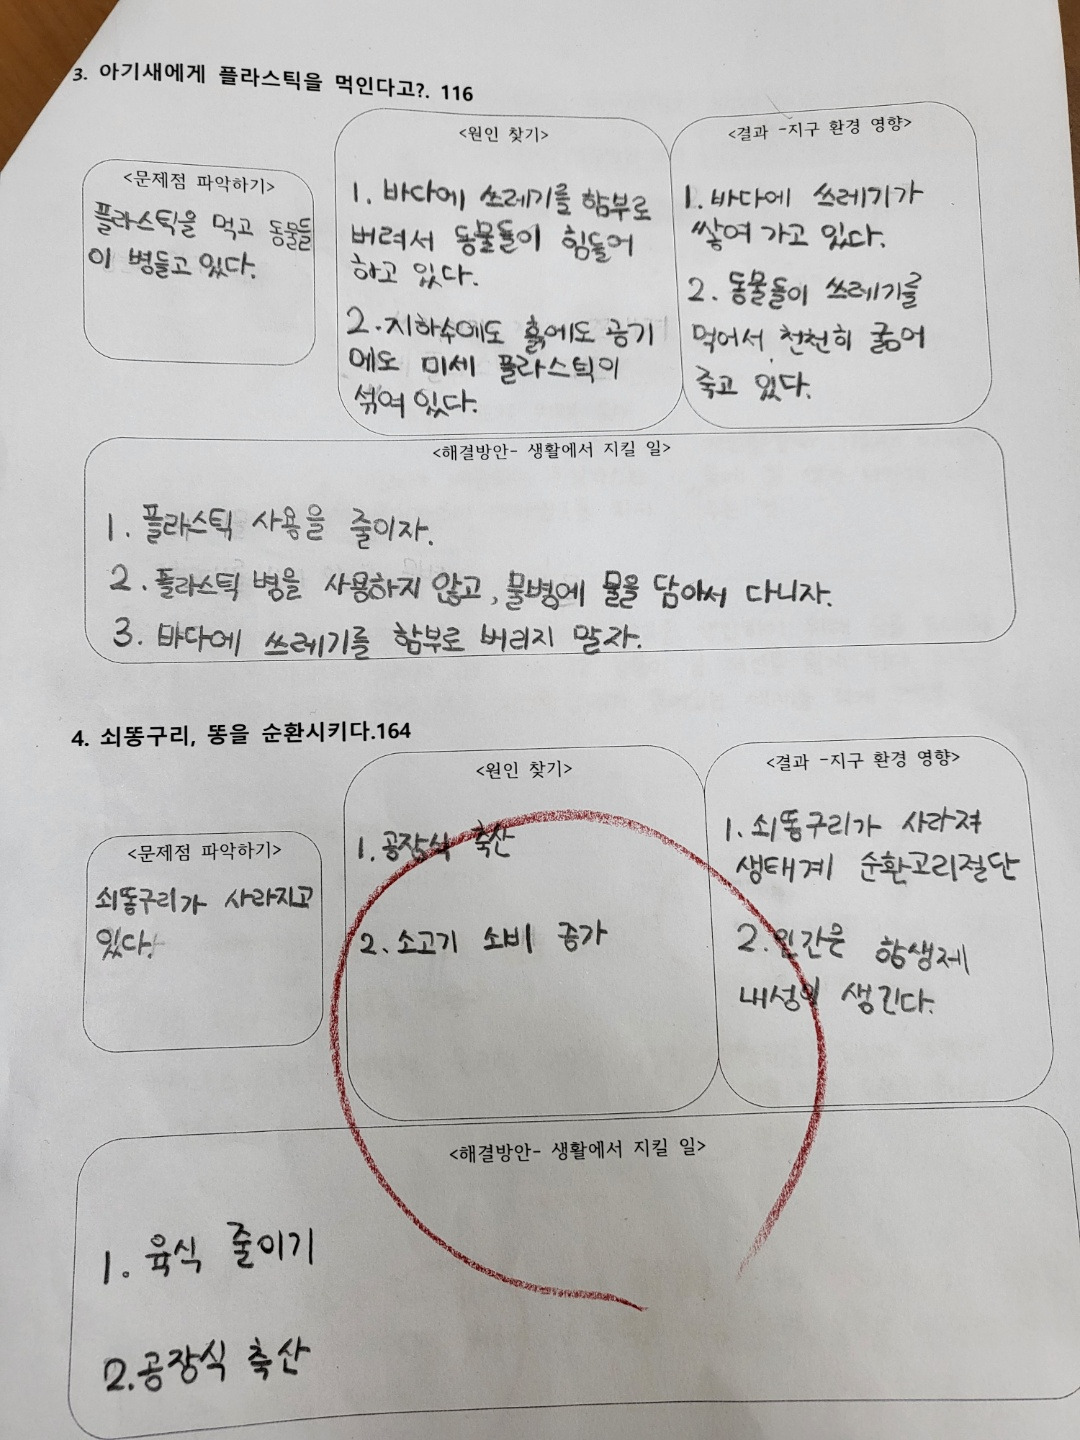 3. 아기새에게 플라스틱을 먹인다고?. 116
<문제점 파악하기>
플라스틱을 먹고 동물들
이 병들고 있다.
<원인 찾기>
1. 바다에 쓰레기를 함부로
버려서 동물들이 힘들어
하고 있다.
2. 지하수에도 흙에도 공기
에도 미세 플라스틱이
섞여 있다.
<결과 -지구 환경 영향>
1. 바다에 쓰레기가
쌓여 가고 있다.
2. 동물들이 쓰레기를
먹어서 천천히 굶어
죽고 있다.
<해결방안- 생활에서 지킬 일>
1. 플라스틱 사용을 줄이자.
2. 플라스틱 병을 사용하지 않고, 물병에 물을 담아서 다니자.
3. 바다에 쓰레기를 함부로 버리지 말자.
4. 쇠똥구리, 똥을 순환시키다.164
<문제점 파악하기>
쇠똥구리가 사라지고
있다.
<원인 찾기>
1. 공장식 축산
2. 소고기 소비 증가
<결과 -지구 환경 영향>
1. 쇠똥구리가 사라져
생태계 순환고리절단
2. 인간은 항생제
내성이 생긴다.
<해결방안- 생활에서 지킬 일>
1. 육식 줄이기
2. 공장식 축산